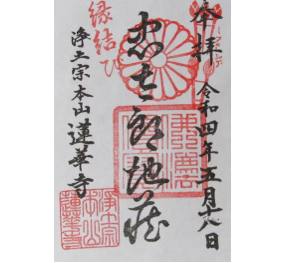 奉拝
令和四年五月十八日
忠太郎地蔵
縁結び
浄土宗本山 蓮華寺
浄土宗
本山
蓮華寺